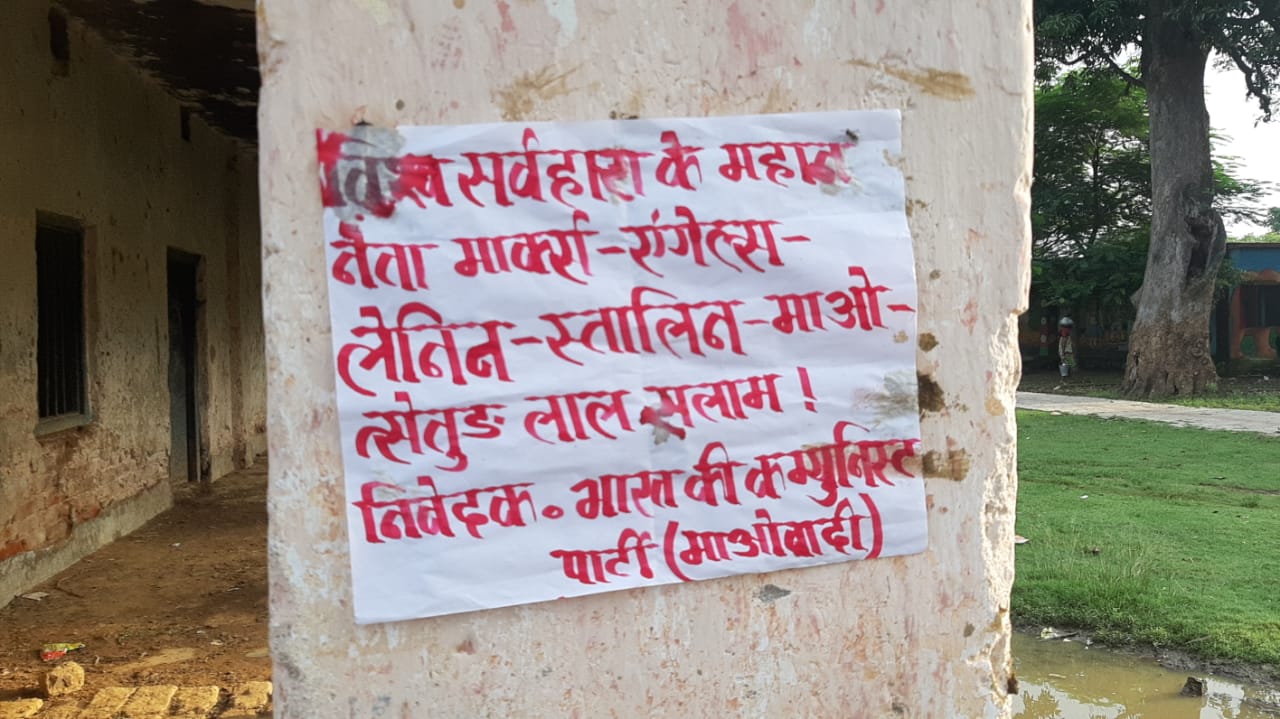 विश्व सर्वहारा के महान
नेता मार्क्स-एंगेल्स-
लेनिन-स्तालिन-माओ-
त्सेतुङ लाल सलाम!
निवेदक. भारत की कम्युनिस्ट
पार्टी (माओवादी)